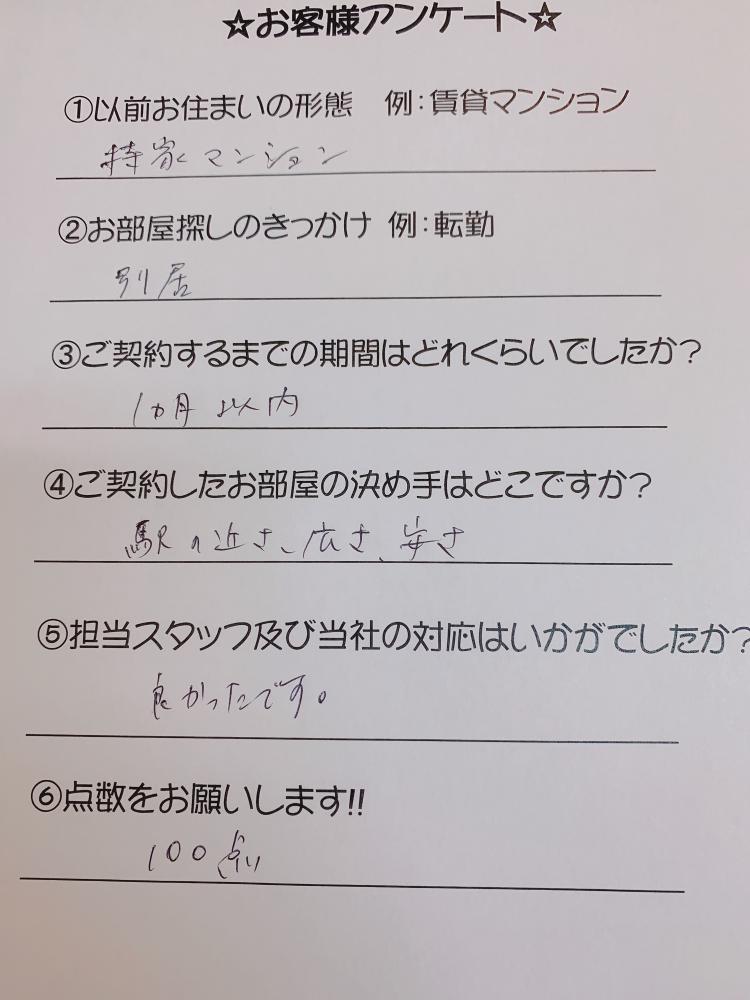 ☆お客様アンケート☆
①以前お住まいの形態 例：賃貸マンション
持家マンション
②お部屋探しのきっかけ 例：転勤
別居
③ご契約するまでの期間はどれくらいでしたか？
1ヵ月以内
④ご契約したお部屋の決め手はどこですか？
駅の近さ、広さ、安さ
⑤担当スタッフ及び当社の対応はいかがでしたか？
良かったです。
⑥点数をお願いします!!
100点